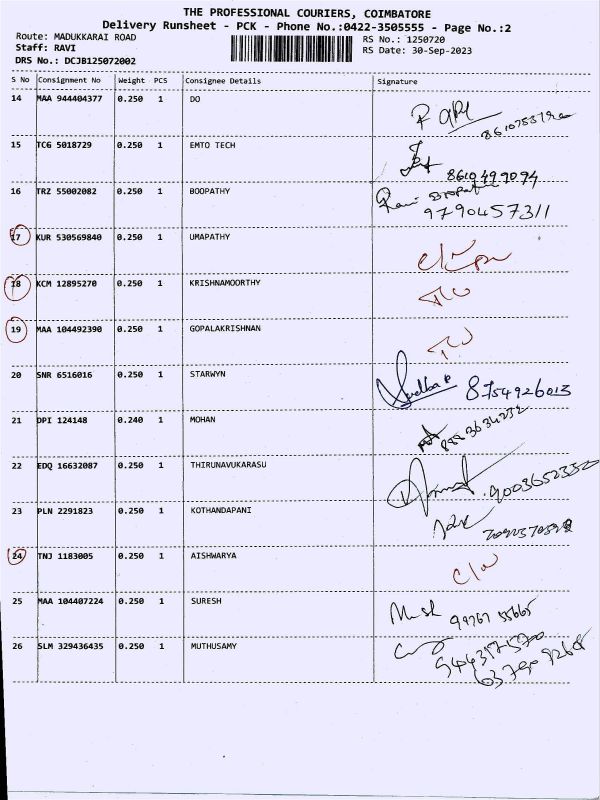 THE PROFESSIONAL COURIERS, COIMBATORE
Delivery Runsheet - PCK - Phone No.:0422-3505555 - Page No.:2
Route: MADUKKARAI ROAD RS No.: 1250720
Staff: RAVI RS Date: 30-Sep-2023
DRS No.: DCJB125072002
S No Consignment No Weight PCS Consignee Details Signature
14 MAA 944404377 0.250 1 DO
15 TCG 5018729 0.250 1 EMTO TECH
8610499094
16 TRZ 55002082 0.250 1 BOOPATHY
9790457311
17 KUR 530569840 0.250 1 UMAPATHY
18 KCM 12895270 0.250 1 KRISHNAMOORTHY
19 MAA 104492390 0.250 1 GOPALAKRISHNAN
20 SNR 6516016 0.250 1 STARWYN 8754926013
21 DPI 124148 0.240 1 MOHAN
22 EDQ 16632087 0.250 1 THIRUNAVUKARASU
9003652332
23 PLN 2291823 0.250 1 KOTHANDAPANI
24 TNJ 1183005 0.250 1 AISHWARYA
25 MAA 104407224 0.250 1 SURESH
26 SLM 329436435 0.250 1 MUTHUSAMY